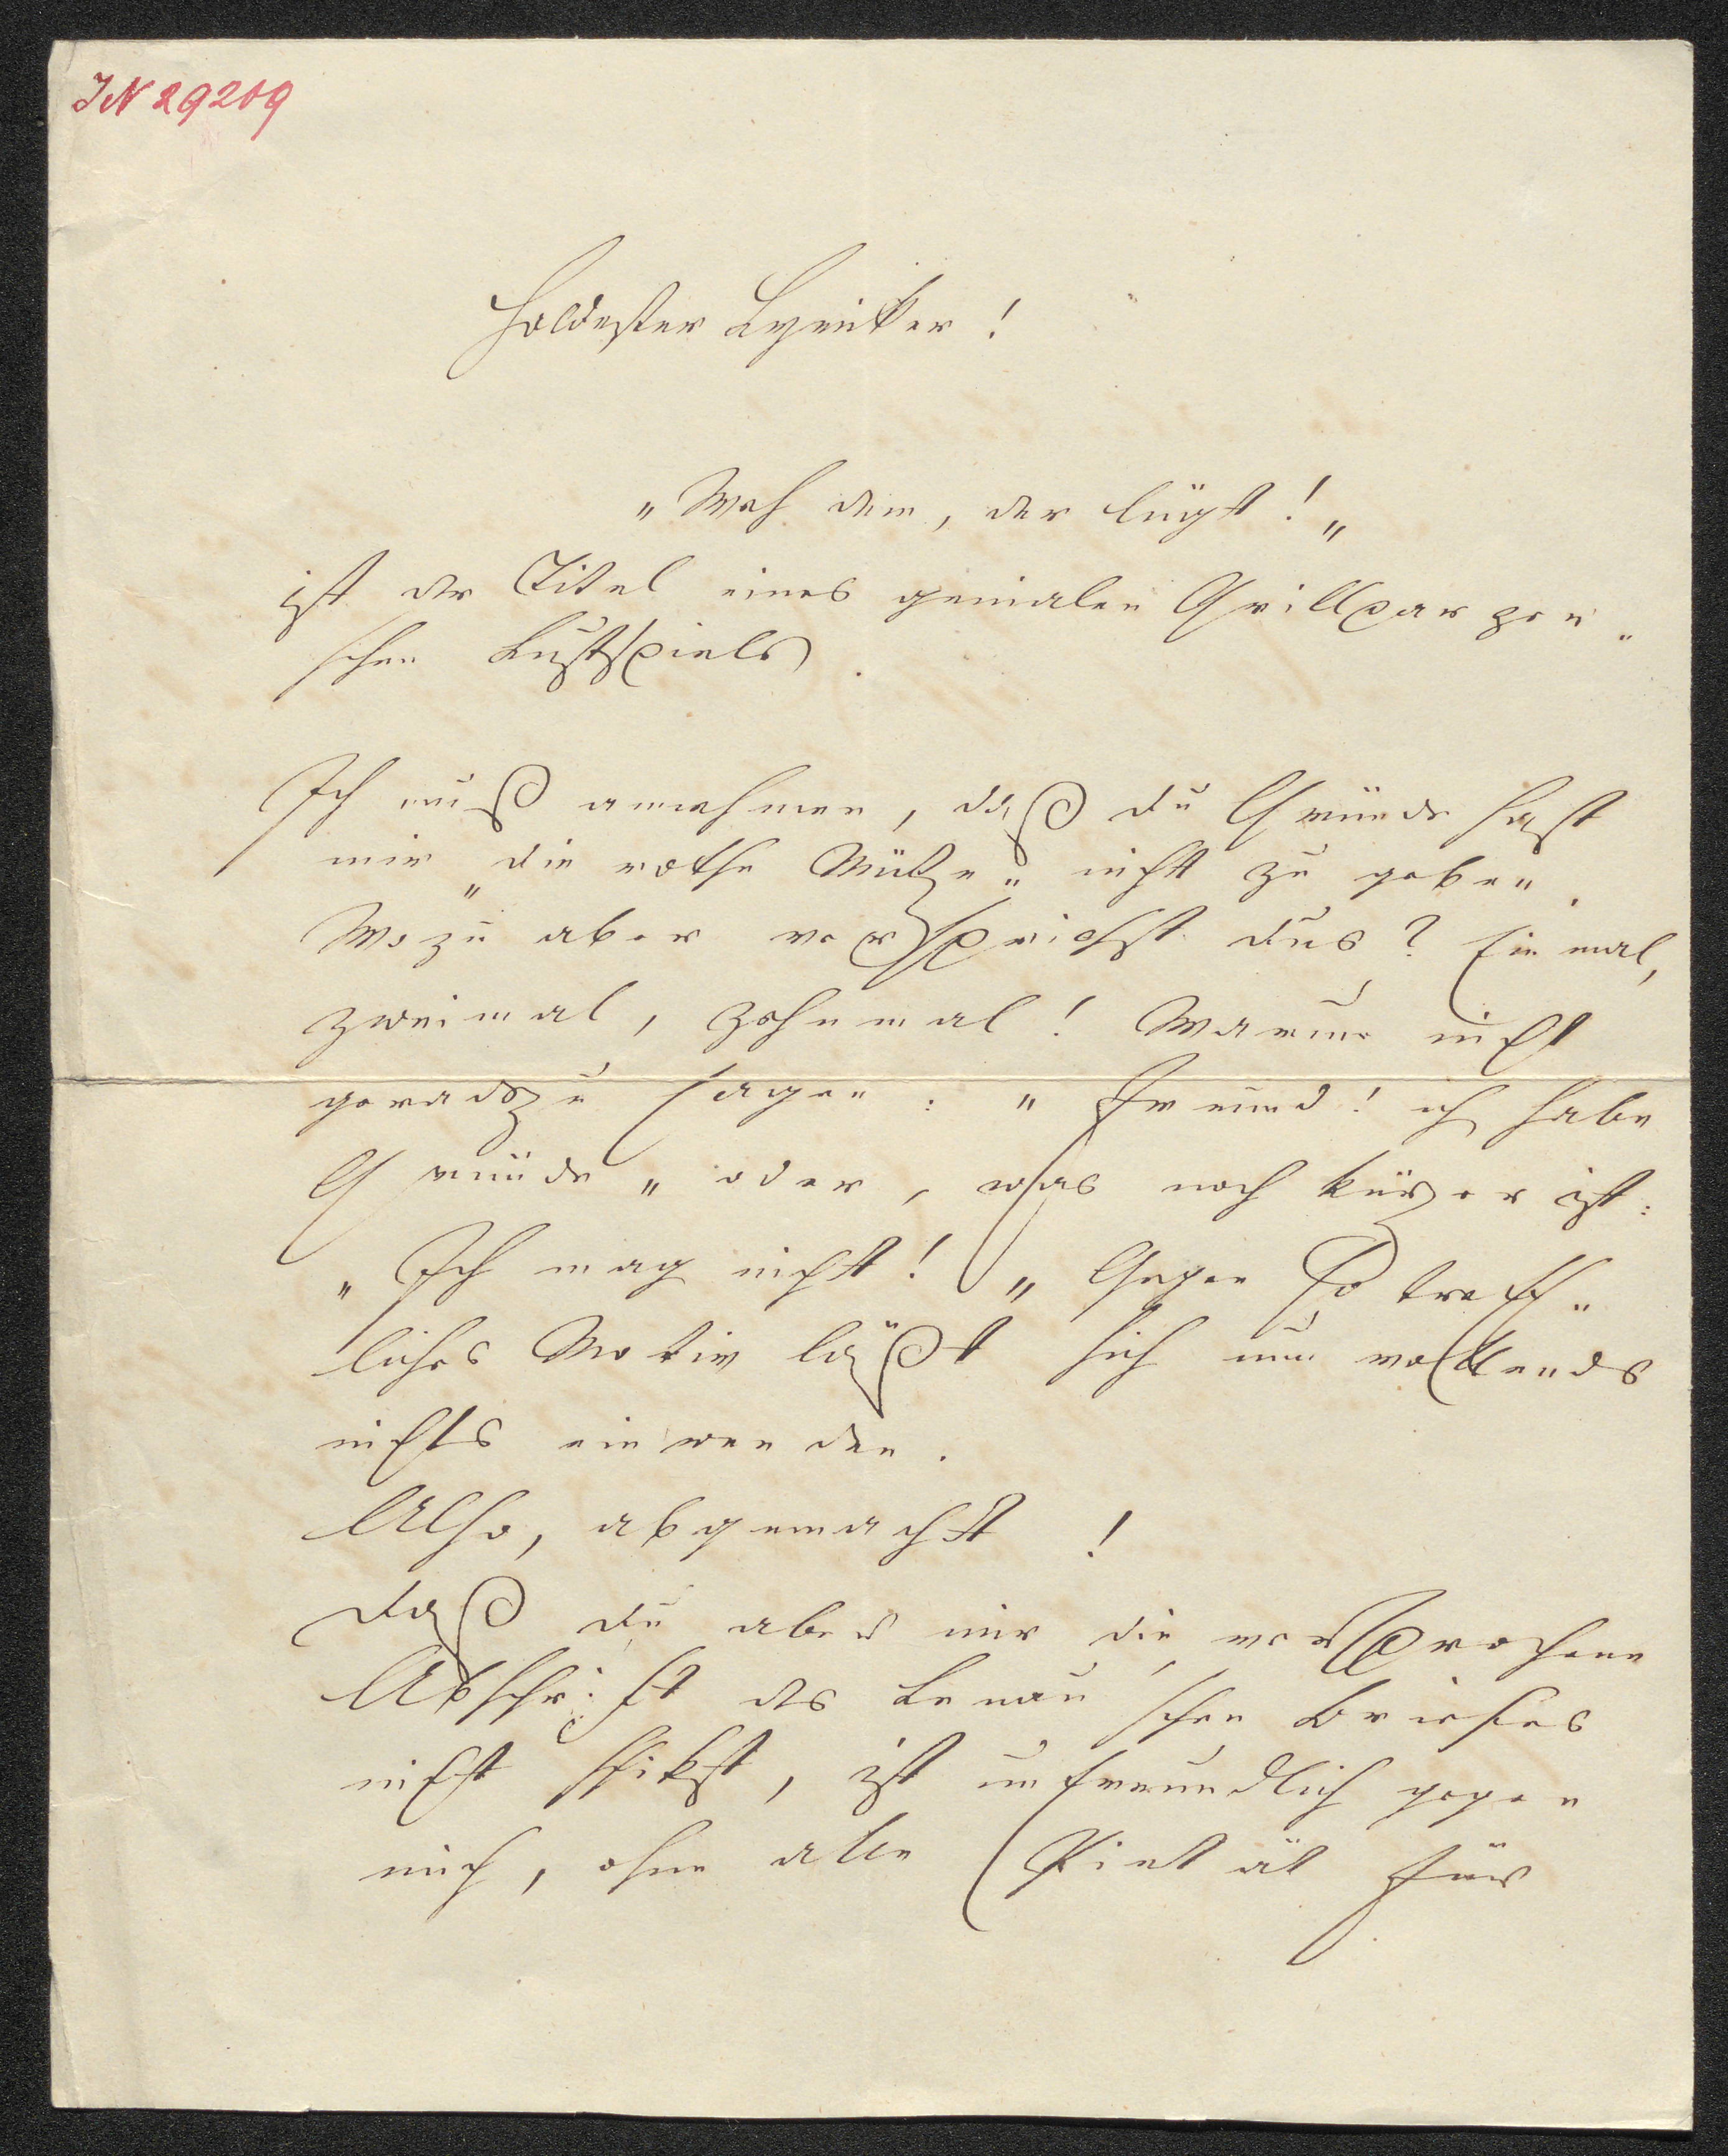 IN 29209
Holdester Lyriker!
"Weh dem, der lügt!"
ist der Titel eines genialen Grillparzer-
schen Lustspiels.
Ich muß annehmen, daß du Gründe hast
mir "die rothe Mütze" nicht zu geben.
Wozu aber versprichst dus? Einmal,
zweimal, zehnmal! Warum nicht
geradezu sagen: "Freund! ich habe
Gründe" oder, was noch kürzer ist:
"Ich mag nicht!" Gegen so treff-
liches Motiv läßt sich nun vollends
nichts einwenden.
Also, abgemacht!
Daß du aber mir die versprochene
Abschrift des Lenau'schen Briefes
nicht schikst, ist unfreundlich gegen
mich, ohne alle Pietät für